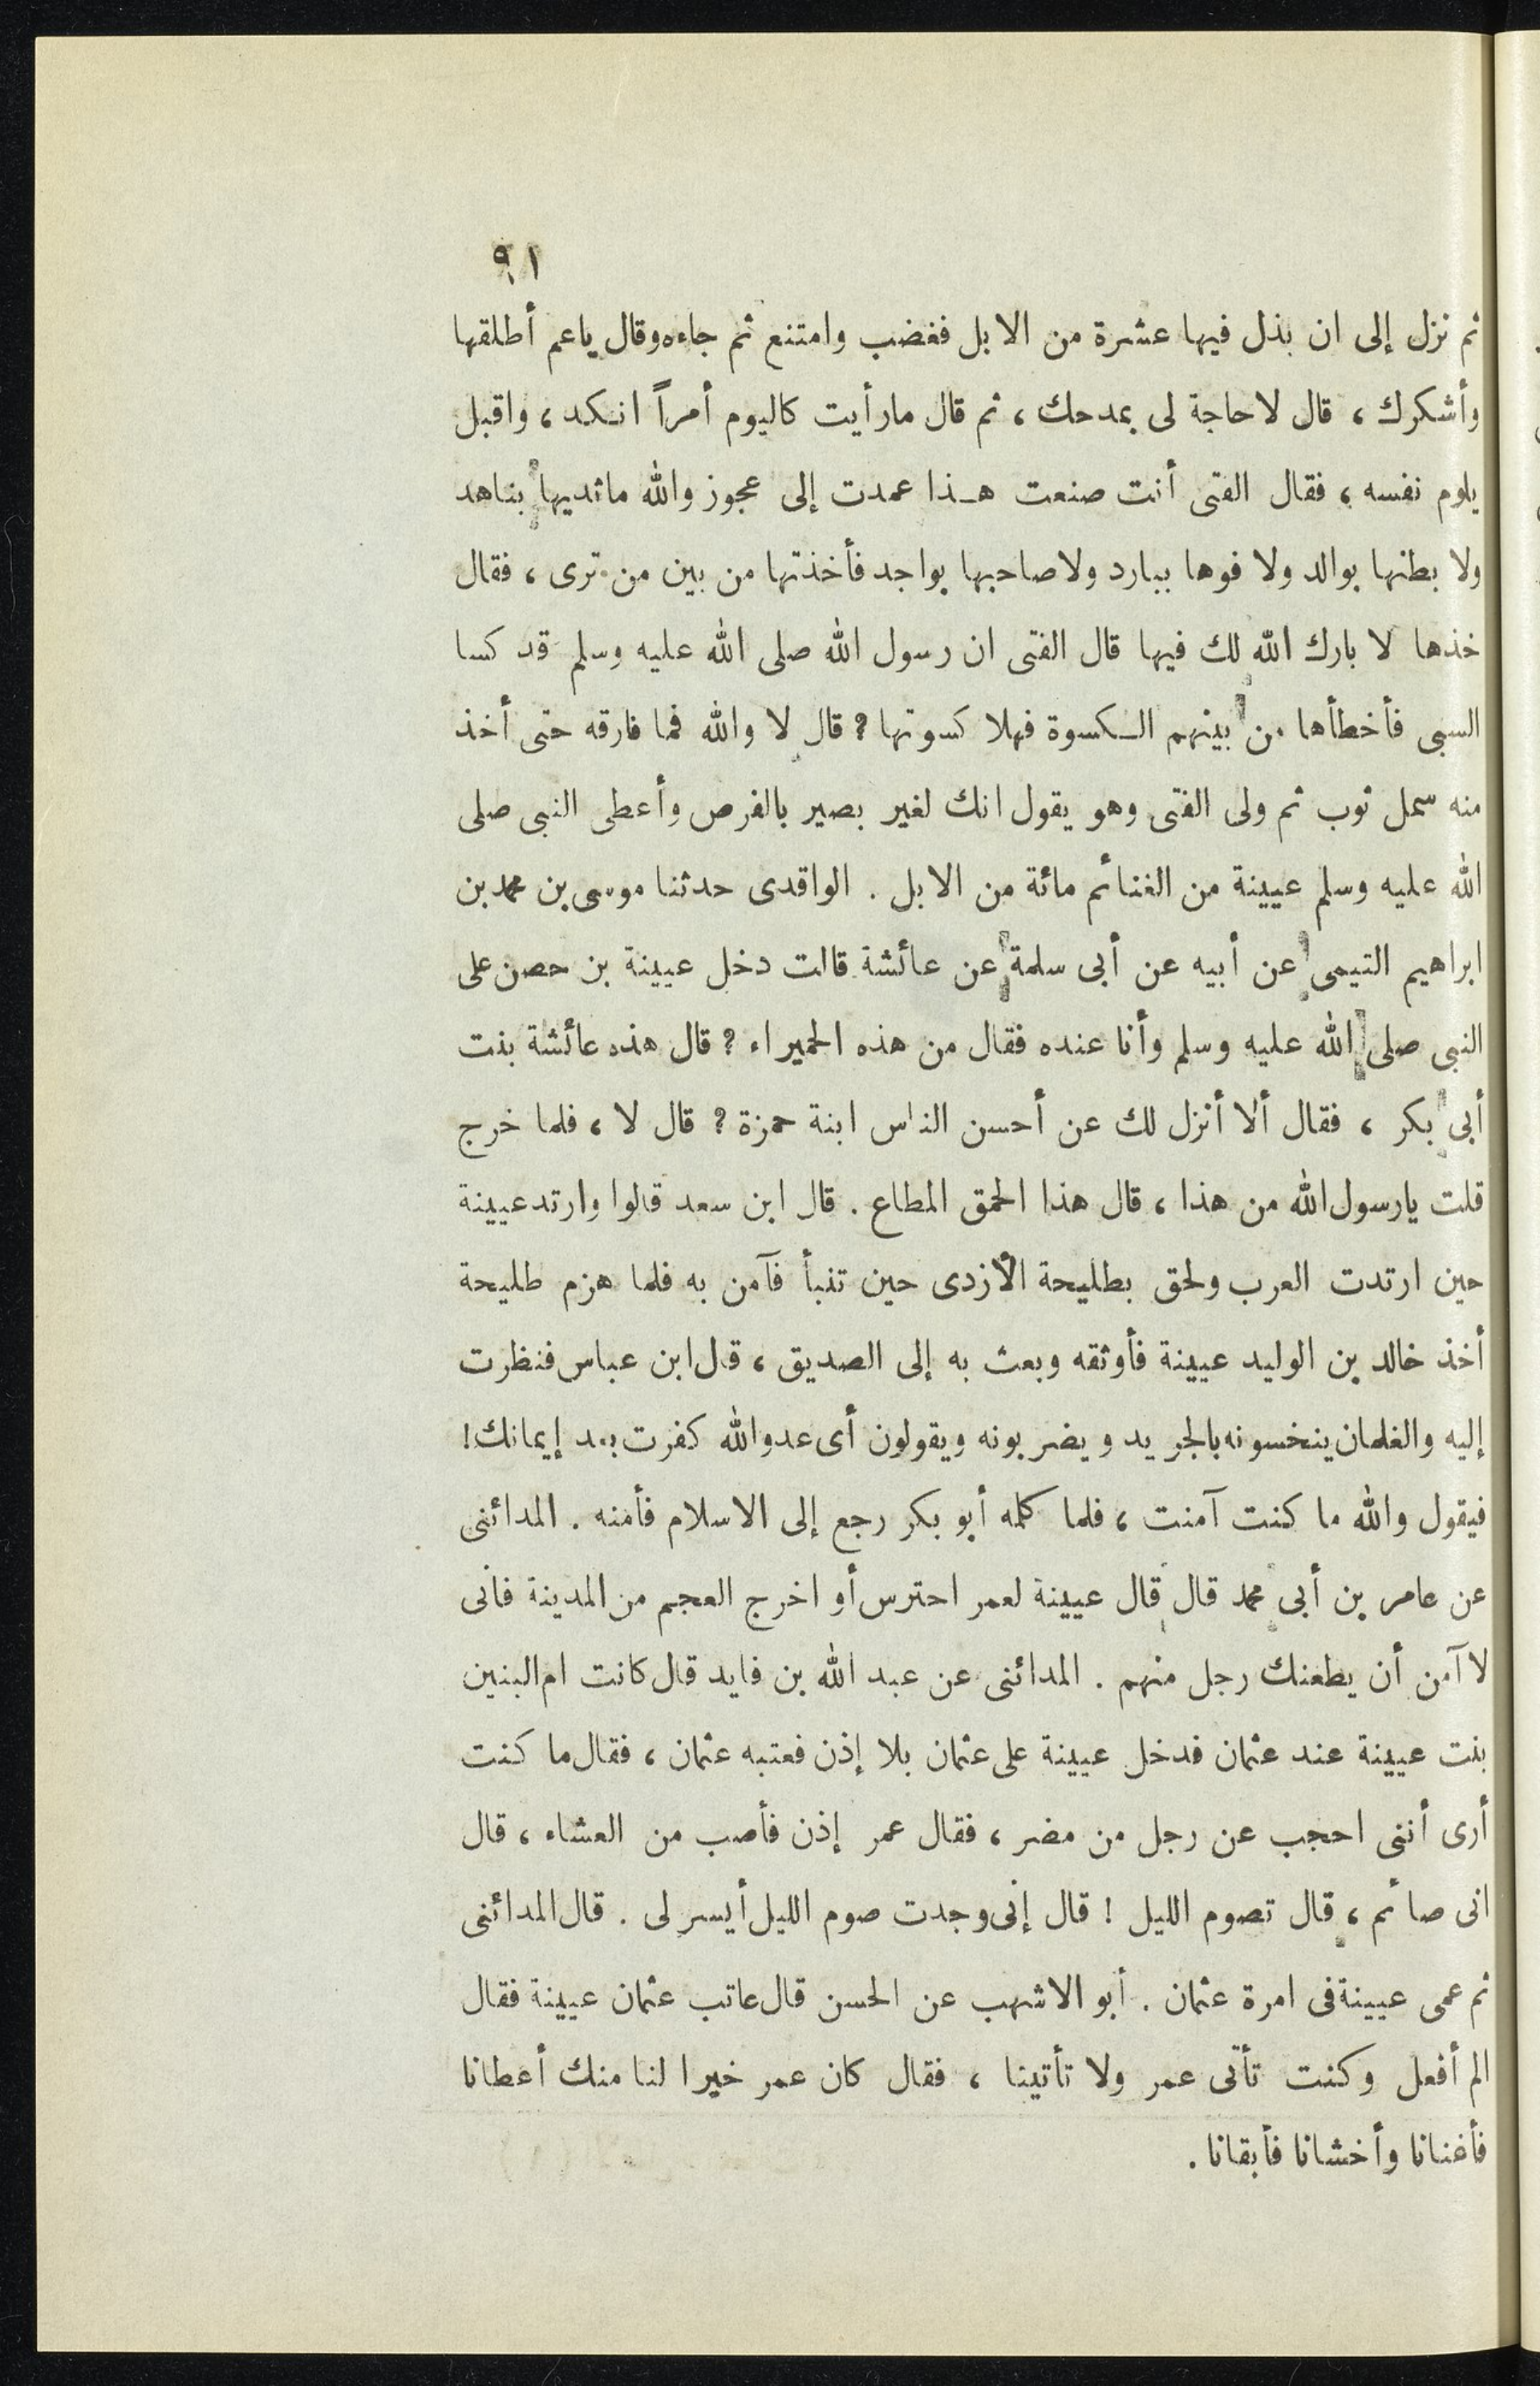 ٩١
ثم نزل إلى ان بذل فيها عشرة من الابل فغضب وامتنع ثم جاءه وقال ياعم أطلقها
وأشكرك ، قال لاحاجة لى بمدحك ، ثم قال مارأيت كاليوم أمراً انكد ، واقبل
يلوم نفسه ، فقال الفتى أنت صنعت هذا عمدت إلى عجوز والله ماثديها بناهد
ولا بطنها بوالد ولا فوها ببارد ولاصاحبها بواجد فأخذتها من بين من ترى ، فقال
خذها لا بارك الله لك فيها قال الفتى ان رسول الله صلى الله عليه وسلم قد كسا
السبى فأخطأها من بينهم الكسوة فهلا كسوتها ؟ قال لا والله فما فارقه حتى أخذ
منه سمل ثوب ثم ولى الفتى وهو يقول انك لغير بصير بالفرص وأعطى النبى صلى
الله عليه وسلم عيينة من الغنائم مائة من الابل . الواقدى حدثنا موسى بن محمد بن
ابراهيم التيمى عن أبيه عن أبى سلمة عن عائشة قالت دخل عيينة بن حصن على
النبى صلى الله عليه وسلم وأنا عنده فقال من هذه الحميراء ؟ قال هذه عائشة بنت
أبى بكر ، فقال ألا أنزل لك عن أحسن الناس ابنة حمزة ؟ قال لا ، فلما خرج
قلت يارسول الله من هذا ، قال هذا الحمق المطاع . قال ابن سعد قالوا وارتد عيينة
حين ارتدت العرب ولحق بطليحة الأزدى حين تنبأ فآمن به فلما هزم طليحة
أخذ خالد بن الوليد عيينة فأوثقه وبعث به إلى الصديق ، قال ابن عباس فنظرت
إليه والغلمان ينخسونه بالجريد ويضربونه ويقولون أى عدو الله كفرت بعد إيمانك !
فيقول والله ما كنت آمنت ، فلما كلمه أبو بكر رجع إلى الاسلام فأمنه . المدائنى
عن عامر بن أبى محمد قال قال عيينة لعمر احترس أو اخرج العجم من المدينة فانى
لا آمن أن يطعنك رجل منهم . المدائنى عن عبد الله بن فايد قال كانت ام البنين
بنت عيينة عند عثمان فدخل عيينة على عثمان بلا إذن فعتبه عثمان ، فقال ما كنت
أرى أننى احجب عن رجل من مضر ، فقال عمر إذن فأصب من العشاء ، قال
انى صائم ، قال تصوم الليل ! قال إنى وجدت صوم الليل أيسر لى . قال المدائنى
ثم عمى عيينة فى امرة عثمان . أبو الاشهب عن الحسن قال عاتب عثمان عيينة فقال
الم أفعل وكنت تأتى عمر ولا تأتينا ، فقال كان عمر خيرا لنا منك أعطانا
فأغنانا وأخشانا فأبقانا .